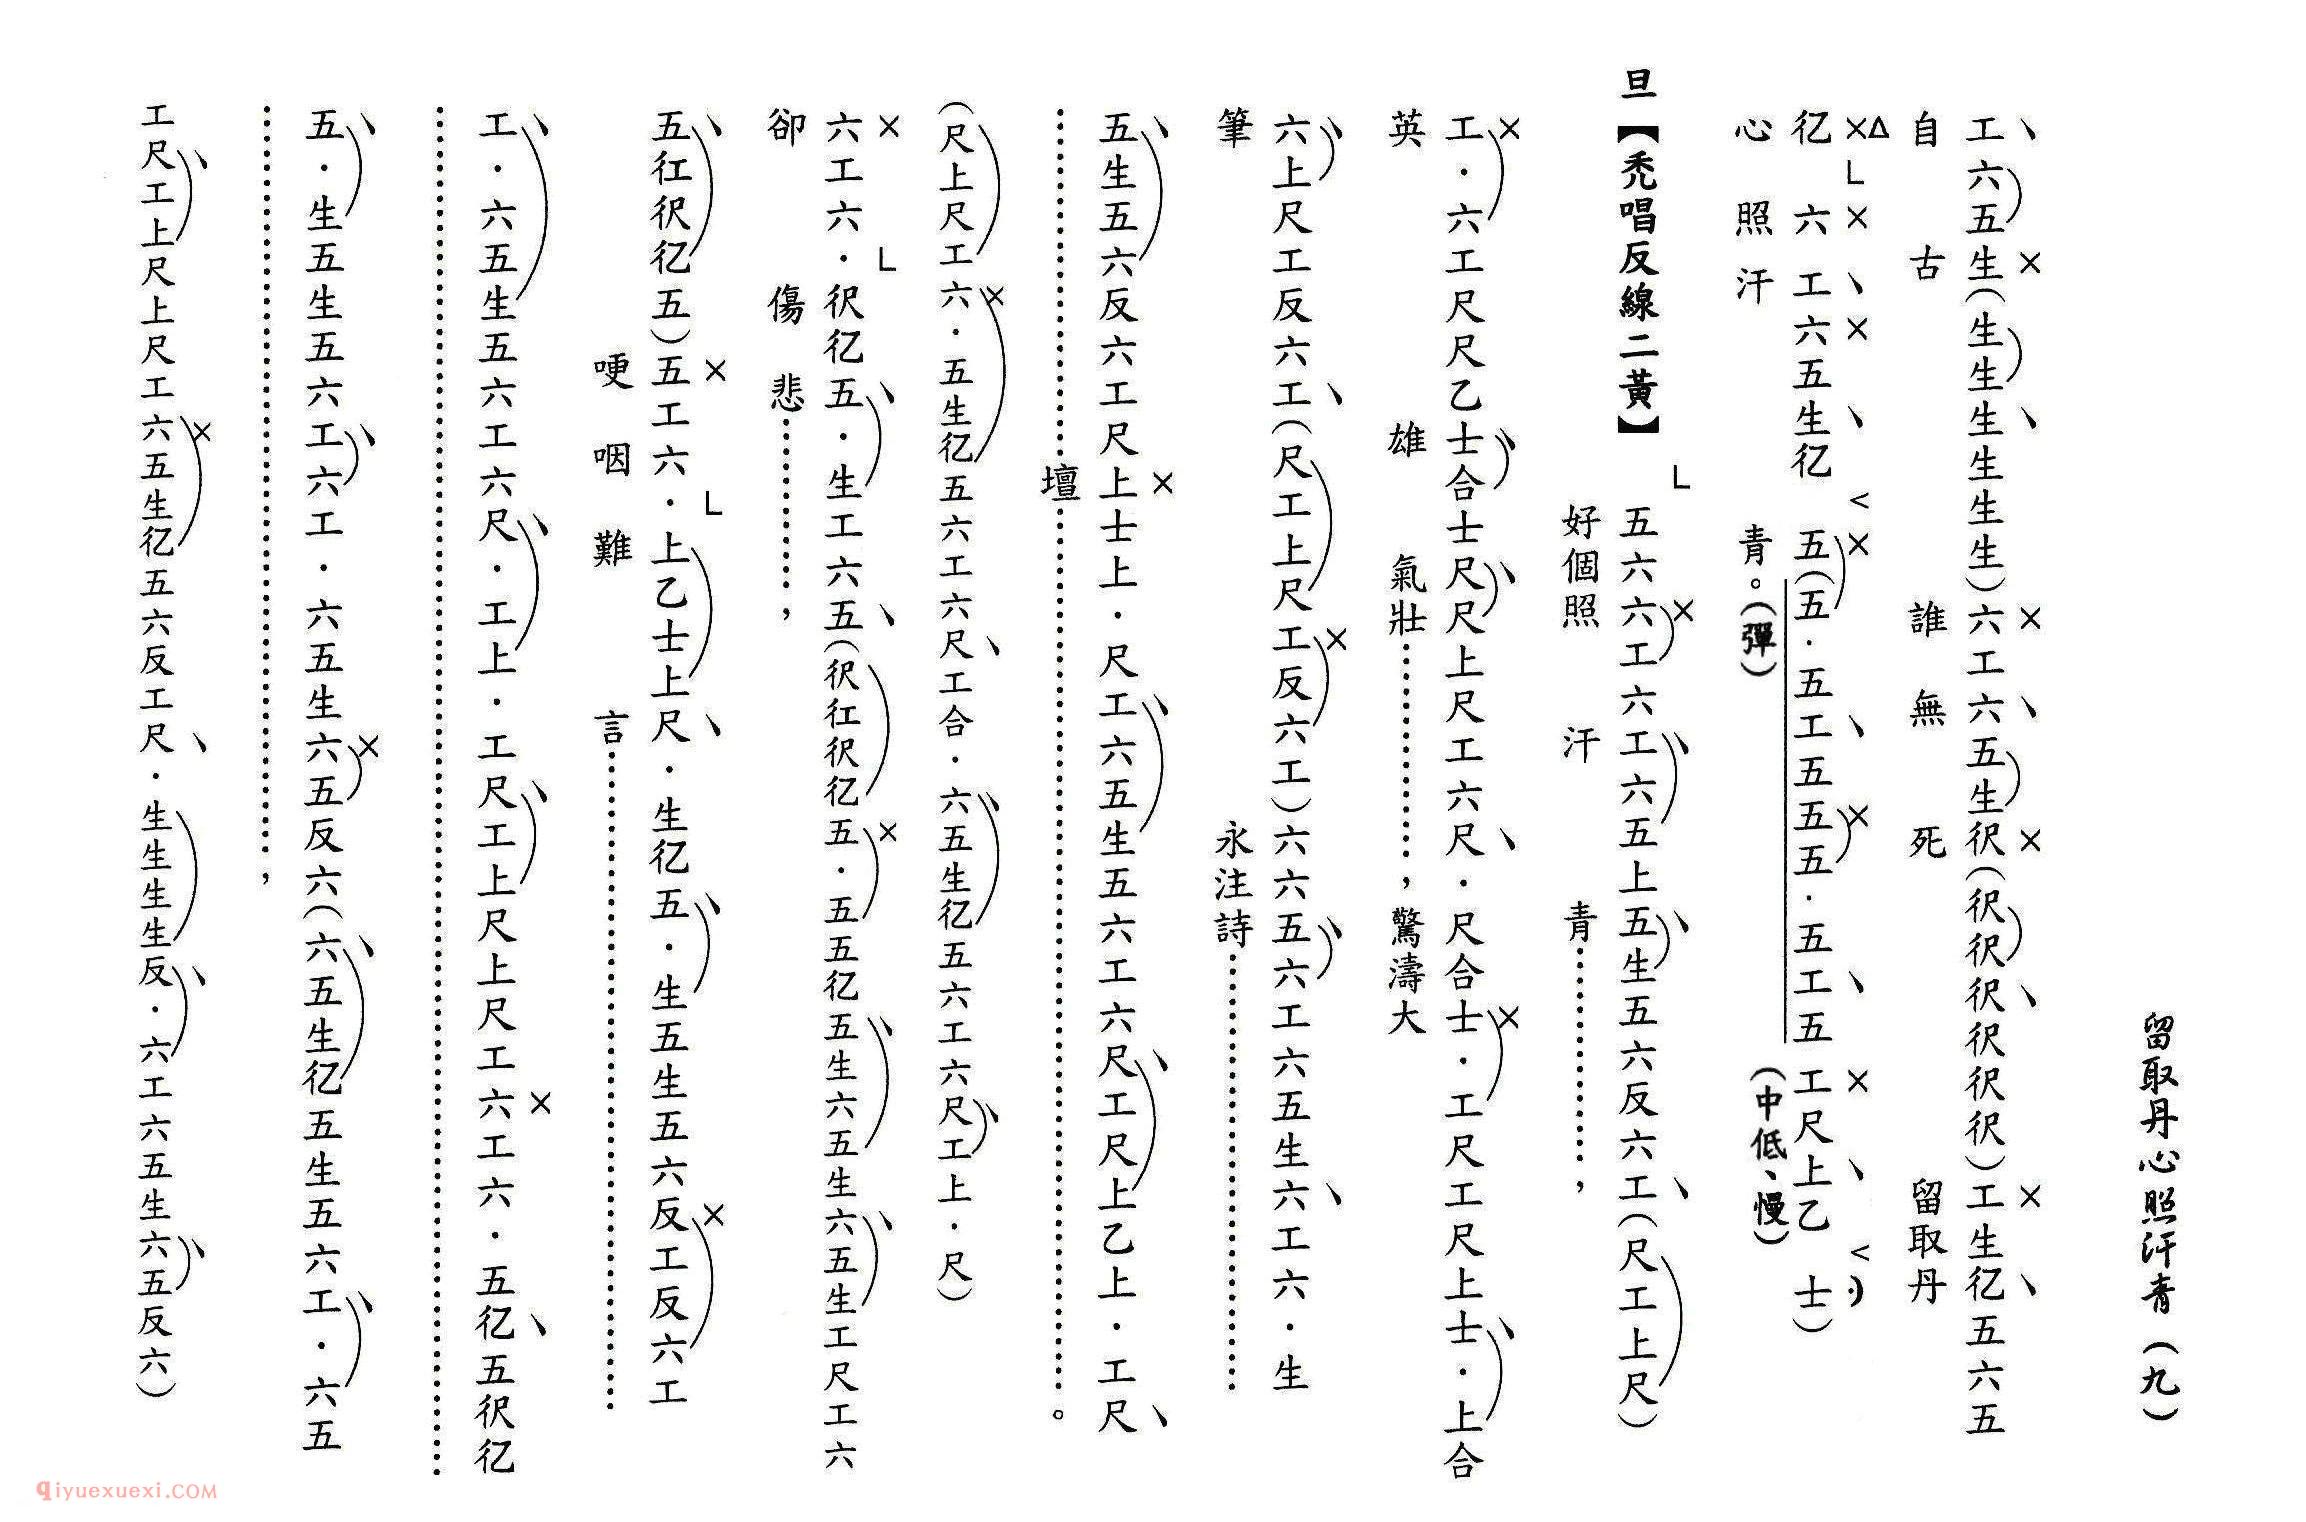 留取丹心照汗青（九）
工六五生（生生生生生生）六工六五生伬（伬伬伬伬伬伬）工生亿五六五
自古誰無死留取丹
亿六工六五生亿五（五．五工五五五．五工五工尺上乙士）
心照汗青。（彈）（中低、慢）
旦【禿唱反線二黃】五六六工六工六五上五生五六反六工（尺工上尺）
好個照汗青………，
工．六工尺尺乙士合士尺尺上尺工六尺．尺合士．工尺工尺上士．上合
英雄氣壯………，驚濤大
六上尺工反六工（尺工上尺工反六工）六六五六工六五生六工六．生
筆永注詩………
五生五六反六工尺上士上．尺工六五生五六工六尺工尺上乙上．工尺
………壇………。
（尺上尺工六．五生亿五六工六尺工合．六五生亿五六工六尺工上．尺）
六工六．伬亿五．生工六五（伬仜伬亿五．五五亿五生六五生六五生工尺工六
卻傷悲………，
五仜伬亿五）五工六．上乙士上尺．生亿五．生五生五六反工反六工
哽咽難言………
工．六五生五六工六尺．工上．工尺工上尺上尺工六工六．五亿五伬亿
………
五．生五生五六工六工．六五生六五反六（六五生亿五生五六工．六五
………，
工尺工上尺上尺工六五生亿五六反工尺．生生生生反．六工六五生六五反六）
qiyuexuexi.com